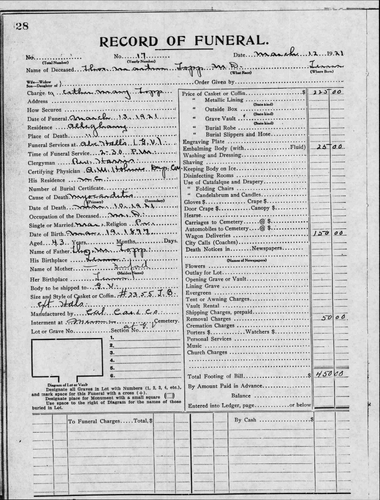 28
RECORD OF FUNERAL.
No. 17 Date, March 12 1921
(Total Number) (Yearly Number)
Name of Deceased M.D. Tenn
(What Race) (Where Born)
Wife-Widow-
Son-Daughter of Order Given by
Charge to Mary Topp
Address
How Secured
Date of Funeral March 13 1921
Residence Alleghany
Place of Death
Funeral Services at (G.V.)
Time of Funeral Service 2:30 P.M.
Clergyman Rev. Harry
Certifying Physician
His Residence
Number of Burial Certificate
Cause of Death Myocarditis
Date of Death Mar. 10 1921
Occupation of the Deceased M.D.
Single or Married Mar. Religion Pro.
Date of Birth 1877
Aged 43 Years Months Days
Name of Father Topp
His Birthplace Tenn.
Name of Mother
Her Birthplace Tenn.
Body to be shipped to G.V.
Size and Style of Casket or Coffin
Manufactured by Cal. Cas. Co.
Interment at
Lot or Grave No. Section No.
1
2
3
4
5
6
Diagram of Lot or Vault
Designate all Graves in Lot with Numbers (1, 2, 3, 4, etc.), and mark place for this Funeral with a cross (+).
Designate place for Monument with a small square
Use space to the right of Diagram for the names of those buried in Lot.
Price of Casket or Coffin 225 00
" Metallic Lining
(State kind)
" Outside Box
(State kind)
" Grave Vault
(State kind)
" Burial Robe
(State kind)
" Burial Slippers and Hose
Engraving Plate
Embalming Body (with Fluid) 25 00
Washing and Dressing
Shaving
Keeping Body on Ice
Disinfecting Rooms
Use of Catafalque and Drapery
" Folding Chairs
" Candelabrum and Candles
Gloves $ Crape $
Door Crape $ Canopy $
Hearse
Carriages to Cemetery @ $
Automobiles to Cemetery @ $
Wagon Deliveries 150 00
City Calls (Coaches)
Death Notices in Newspapers
(Names of Newspapers)
Flowers
Outlay for Lot
Opening Grave or Vault
Lining Grave
Evergreen
Tent or Awning Charges
Vault Rental
Shipping Charges, prepaid
Removal Charges 50 00
Cremation Charges
Porters $ Watchers $
Personal Services
Music
Church Charges
Total Footing of Bill $ 450 00
By Amount Paid in Advance
Balance
Entered into Ledger, page or below
To Funeral Charges $ By Cash $